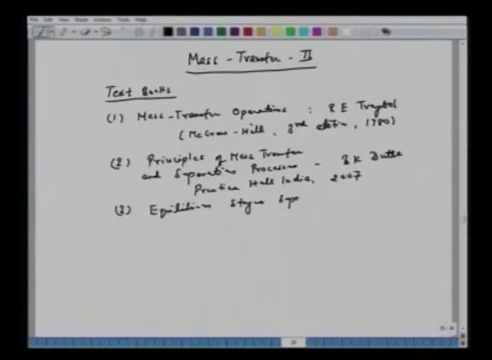 Mass-Transfer-II
Text Books
(1) Mass-Transfer Operations : R E Treybal
(McGraw-Hill, 3rd edition, 1980)
(2) Principles of Mass Transfer
and Separation Processes - B K Dutta
Prentice Hall India, 2007
(3) Equilibrium Stages Sepa